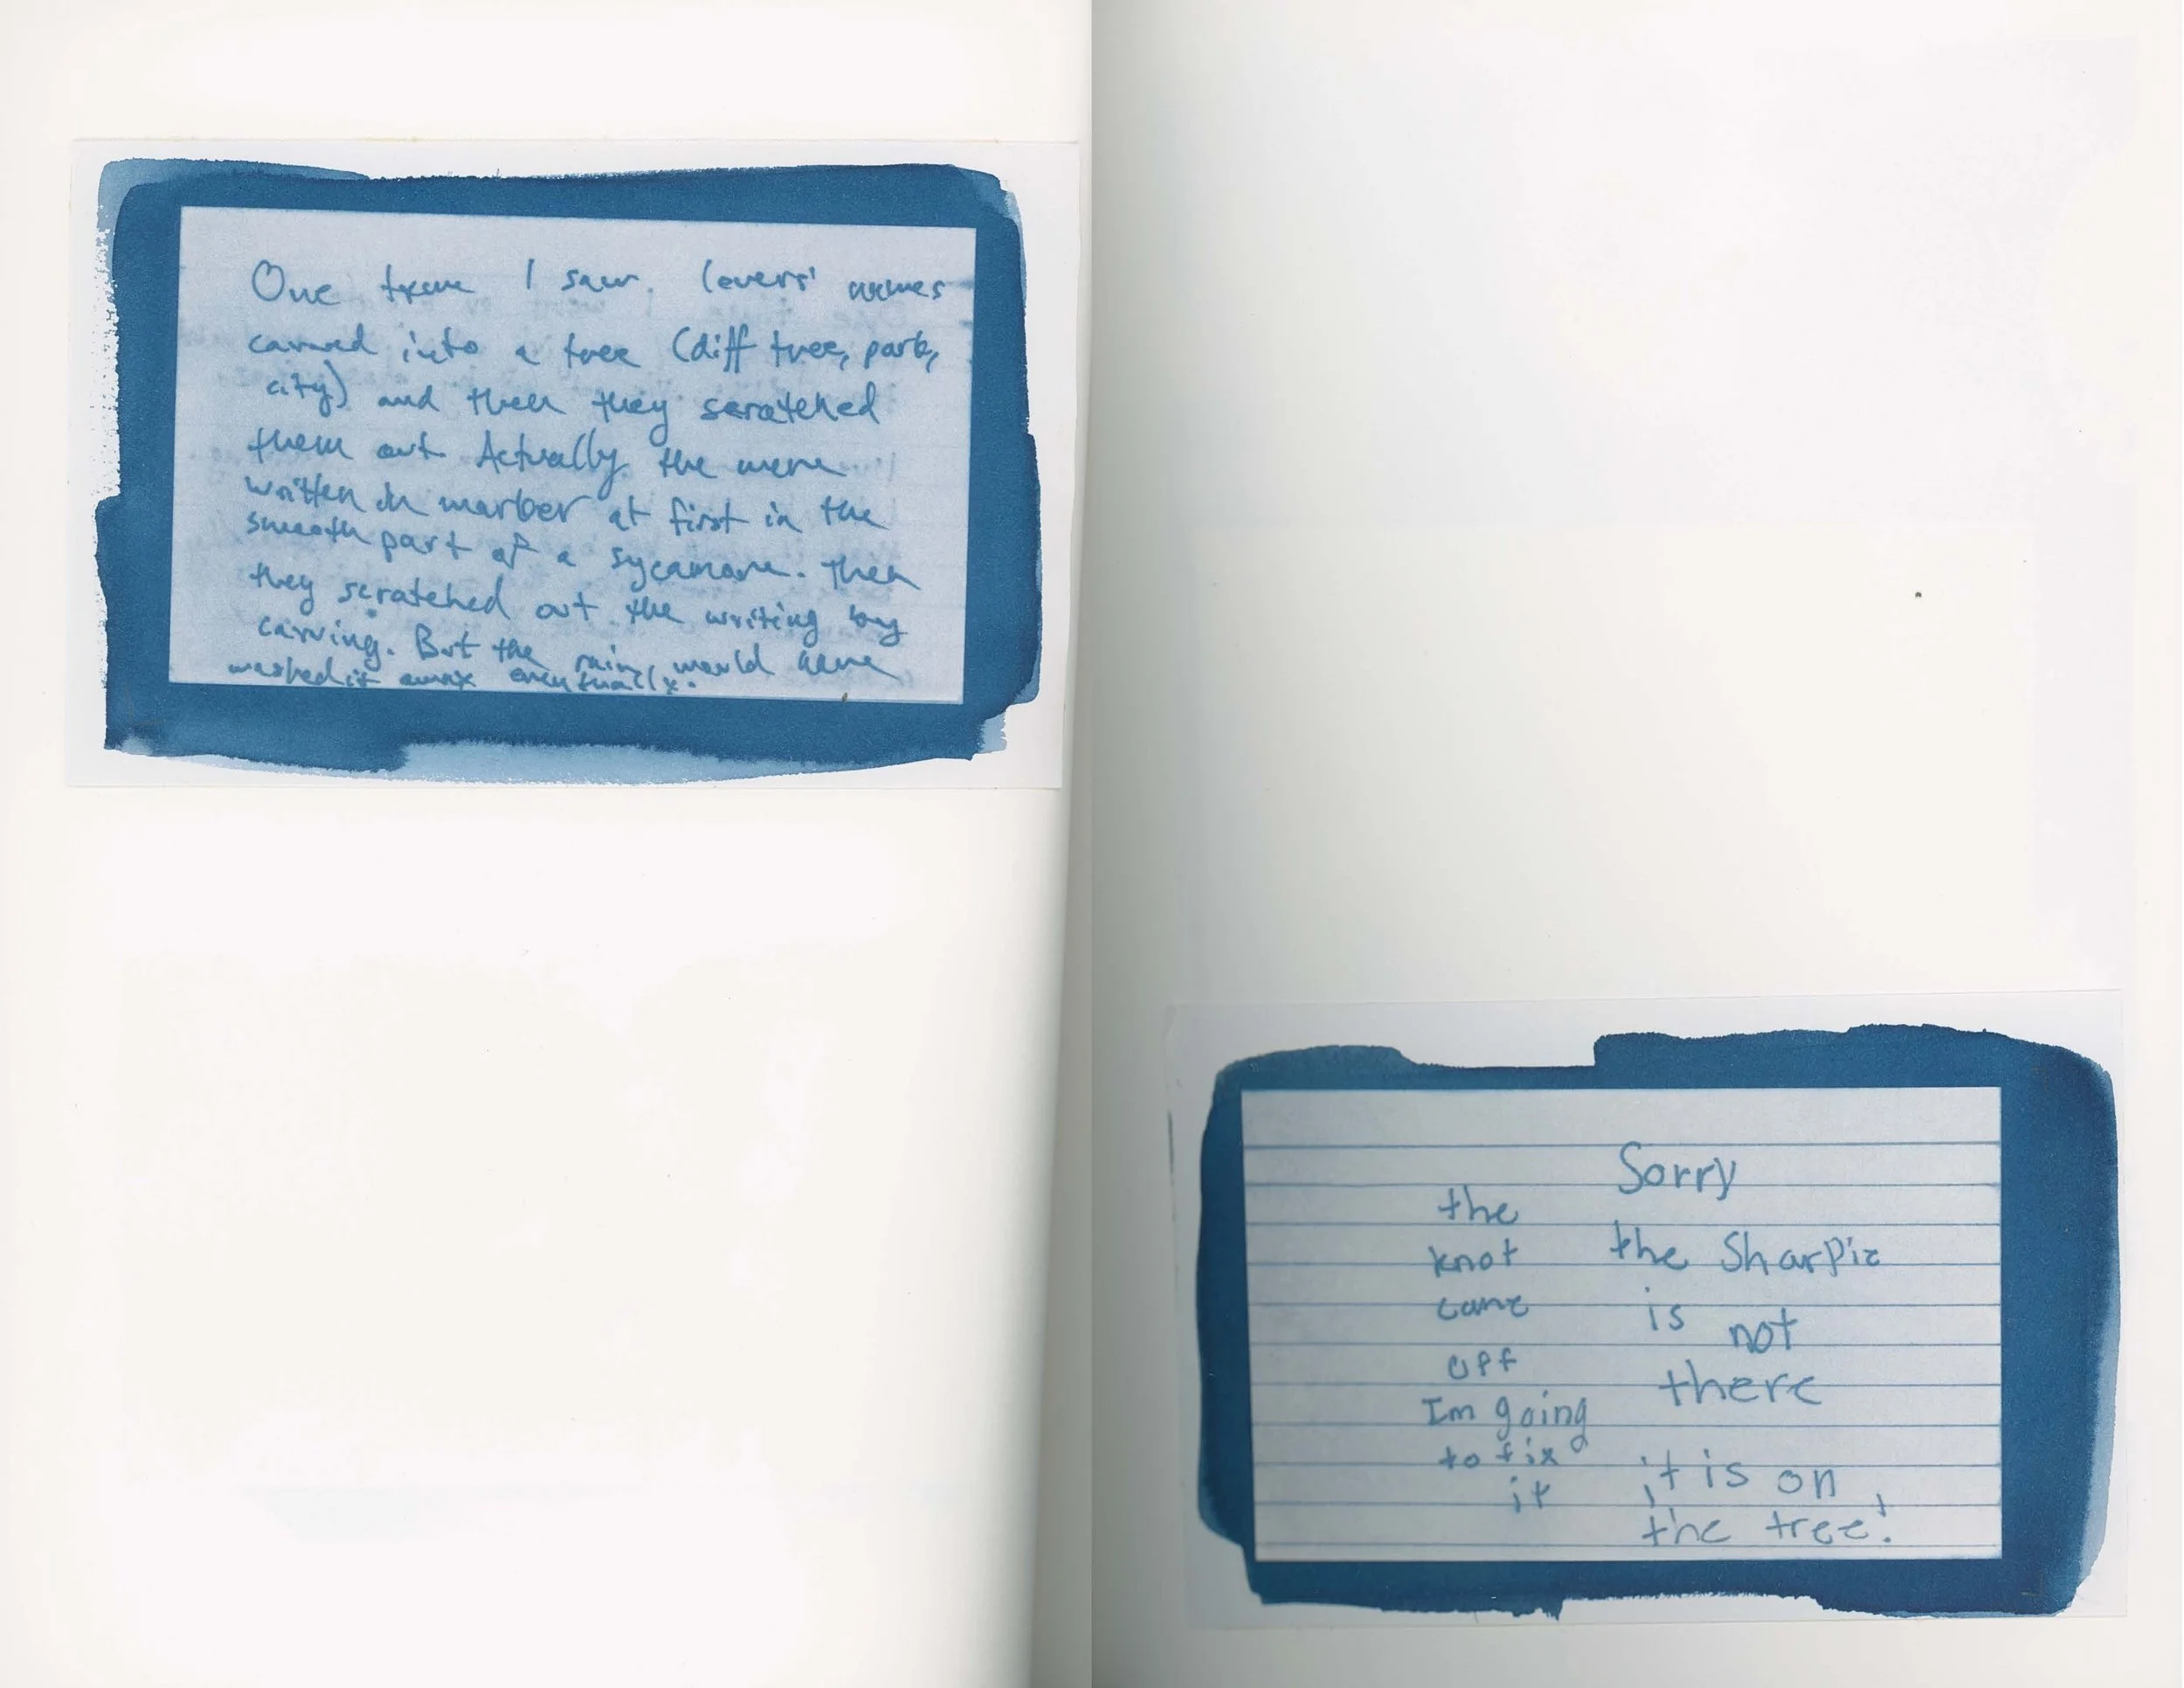 One time I saw lovers' names
carved into a tree (diff tree, park,
city) and then they scratched
them out Actually the were
written in marker at first in the
smooth part of a sycamore. Then
they scratched out the writing by
carving. But the rain would have
washed it away eventually.
Sorry
the Sharpie
is not
there
it is on
the tree!
the
knot
came
off
Im going
to fix
it